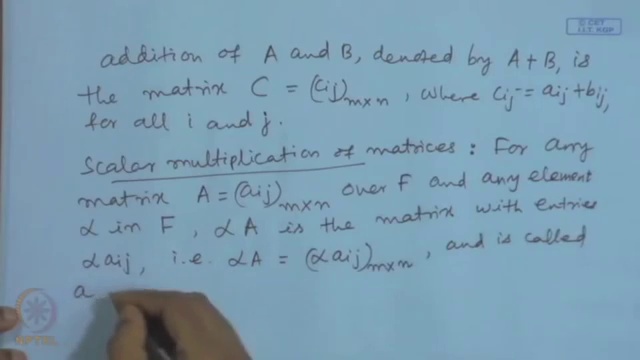 © CET
I.I.T. KGP
addition of A and B, denoted by A + B, is
the matrix C = (cij)m×n, where cij = aij + bij,
for all i and j.
Scalar multiplication of matrices : For any
matrix A = (aij)m×n over F and any element
α in F, αA is the matrix with entries
αaij, i.e. αA = (αaij)m×n, and is called
a
NPTEL